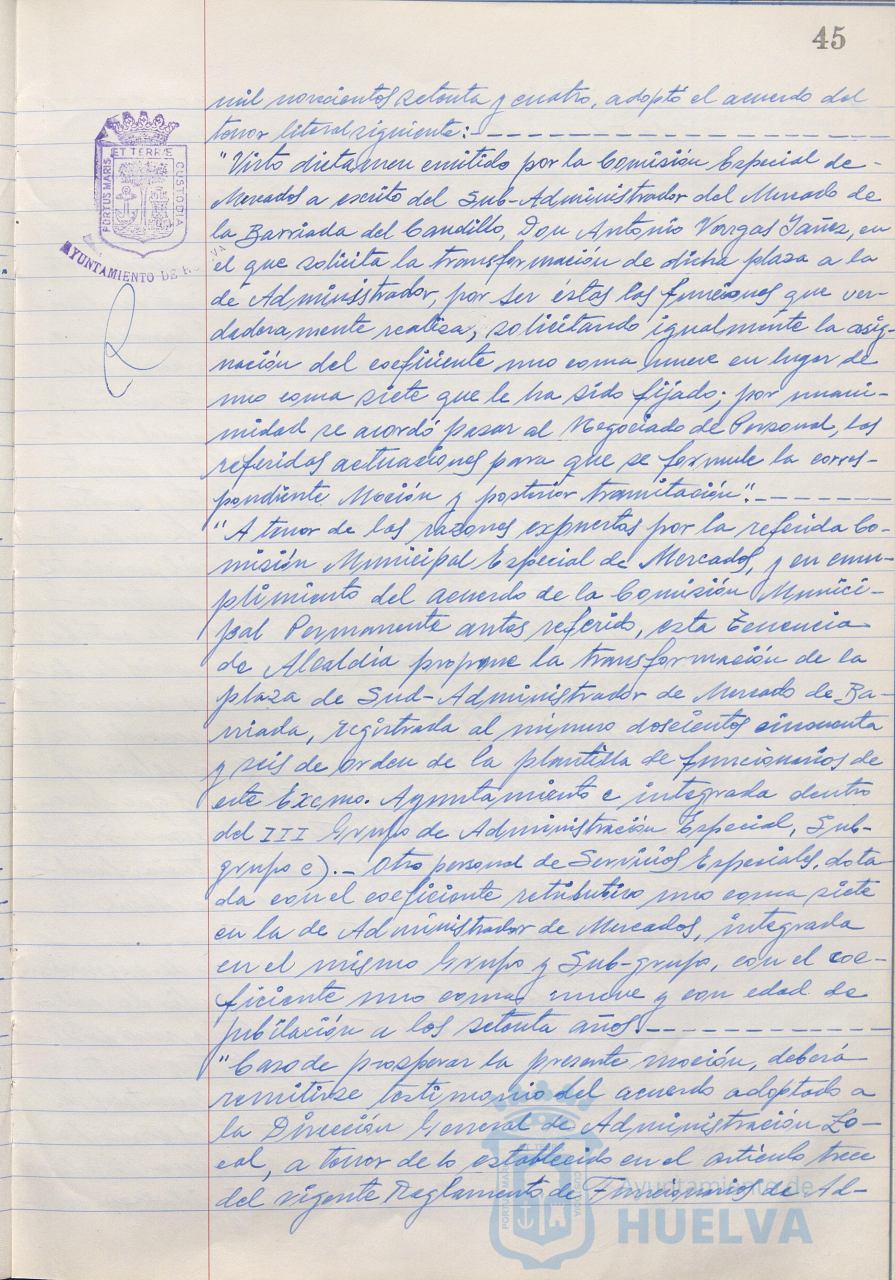 45
mil novecientos setenta y cuatro, adoptó el acuerdo del
tenor literal siguiente:
"Visto dictamen emitido por la Comisión Especial de
Mercados a escrito del Sub-Administrador del Mercado de
la Barriada del Candillo, Don Antonio Vargas Yañez, en
el que solicita la transformación de dicha plaza a la
de Administrador, por ser éstas las funciones que ver-
daderamente realiza, solicitando igualmente la asig-
nación del coeficiente uno coma nueve en lugar de
uno coma siete que le ha sido fijado; por unani-
midad se acordó pasar al Negociado de Personal, las
referidas actuaciones para que se formule la corres-
pondiente Moción y posterior tramitación".
"A tenor de las razones expuestas por la referida Co-
misión Municipal Especial de Mercados, y en cum-
plimiento del acuerdo de la Comisión Munici-
pal Permanente antes referido, esta Tenencia
de Alcaldía propone la transformación de la
plaza de Sud-Administrador de Mercado de Ba-
rriada, registrada al número doscientos cincuenta
y seis de orden de la plantilla de funcionarios de
este Excmo. Ayuntamiento e integrada dentro
del III Grupo de Administración Especial, Sub-
grupo c).- Otro personal de Servicios Especiales, dota
da con el coeficiente retributivo uno coma siete
en la de Administrador de Mercados, integrada
en el mismo Grupo y Sub-grupo, con el coe-
ficiente uno coma nueve y con edad de
jubilación a los setenta años
"Caso de prosperar la presente moción, deberá
remitirse testimonio del acuerdo adoptado a
la Dirección General de Administración Lo-
cal, a tenor de lo establecido en el artículo trece
del vigente Reglamento de Funcionarios de Ad-
PORTUS MARIS
ET TERRÆ
CUSTODIA
AYUNTAMIENTO DE HUELVA
Ayuntamiento de
HUELVA